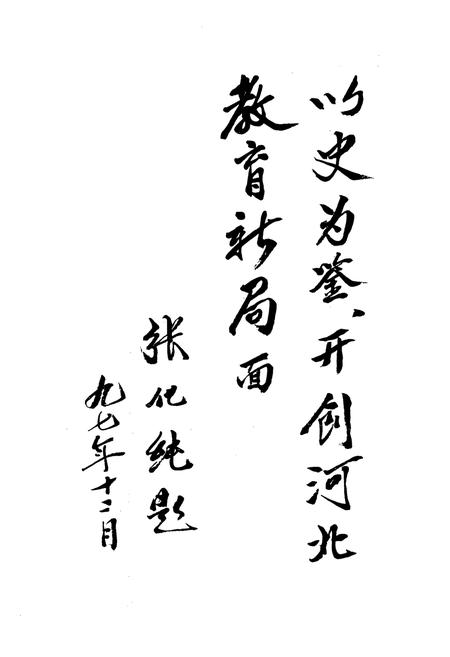 以史为鉴、开创河北
教育新局面
张化纯题
九七年十二月